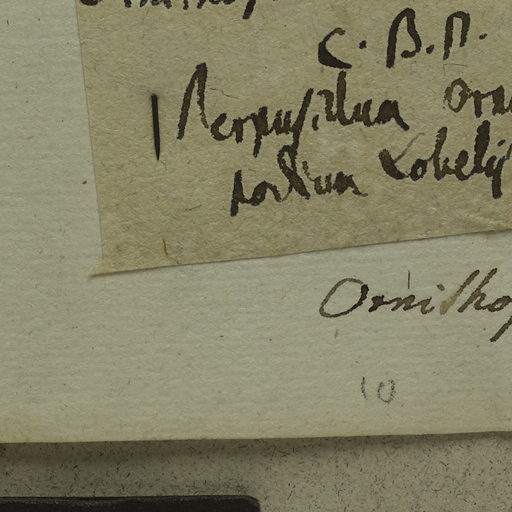 C. B. P.
Perpusillum Orni
podium Lobelij
Ornithop
10